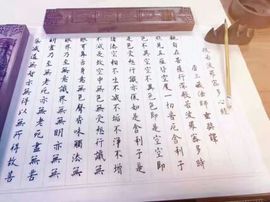 般若波羅蜜多心經
唐三藏法師玄奘譯
觀自在菩薩行深般若波羅蜜多時
照見五蘊皆空度一切苦厄舍利子
色不異空空不異色色即是空空即
是色受想行識亦復如是舍利子是
諸法空相不生不滅不垢不淨不增
不減是故空中無色無受想行識無
眼耳鼻舌身意無色聲香味觸法無
眼界乃至無意識界無無明亦無無
明盡乃至無老死亦無老死盡無苦
集滅道無智亦無得以無所得故菩